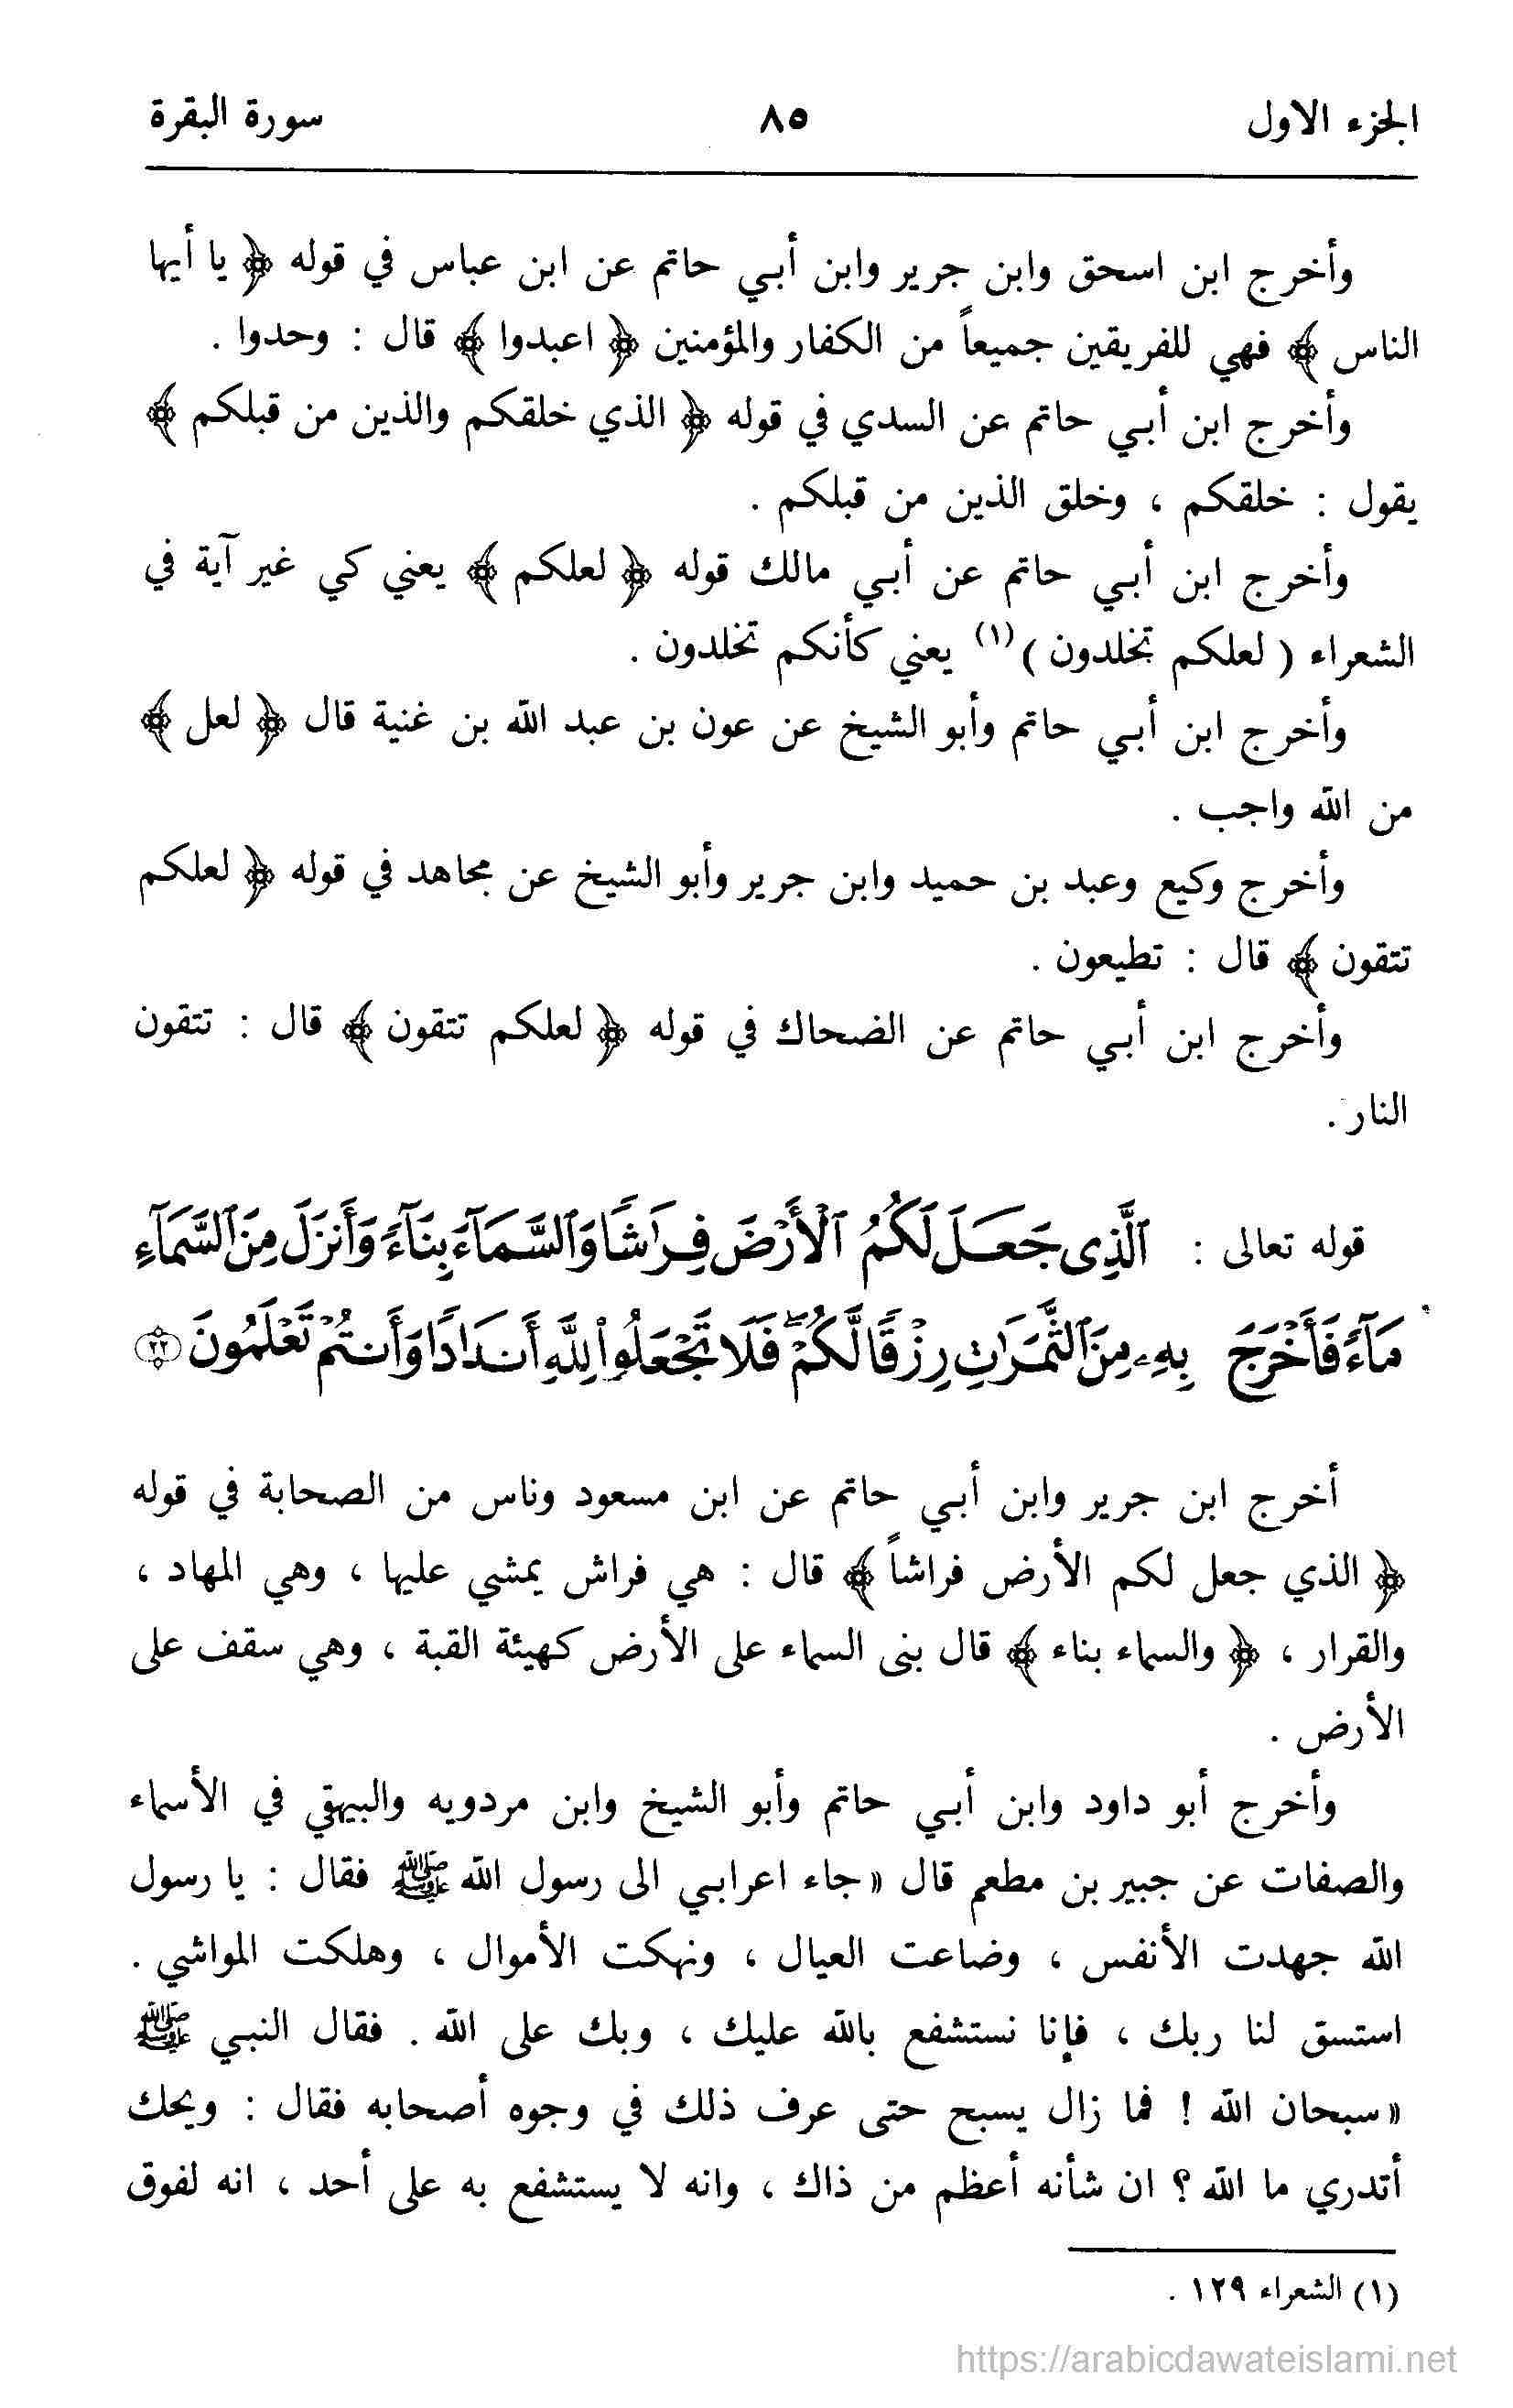 الجزء الاول ٨٥ سورة البقرة
وأخرج ابن اسحق وابن جرير وابن أبي حاتم عن ابن عباس في قوله ﴿ يا أيها
الناس ﴾ فهي للفريقين جميعاً من الكفار والمؤمنين ﴿ اعبدوا ﴾ قال : وحدوا .
وأخرج ابن أبي حاتم عن السدي في قوله ﴿ الذي خلقكم والذين من قبلكم ﴾
يقول : خلقكم ، وخلق الذين من قبلكم .
وأخرج ابن أبي حاتم عن أبي مالك قوله ﴿ لعلكم ﴾ يعني كي غير آية في
الشعراء ( لعلكم تخلدون )(١) يعني كأنكم تخلدون .
وأخرج ابن أبي حاتم وأبو الشيخ عن عون بن عبد الله بن غنية قال ﴿ لعل ﴾
من الله واجب .
وأخرج وكيع وعبد بن حميد وابن جرير وأبو الشيخ عن مجاهد في قوله ﴿ لعلكم
تتقون ﴾ قال : تطيعون .
وأخرج ابن أبي حاتم عن الضحاك في قوله ﴿ لعلكم تتقون ﴾ قال : تتقون
النار .
قوله تعالى : ٱلَّذِى جَعَلَ لَكُمُ ٱلْأَرْضَ فِرَٰشًا وَٱلسَّمَآءَ بِنَآءً وَأَنزَلَ مِنَ ٱلسَّمَآءِ
مَآءً فَأَخْرَجَ بِهِۦ مِنَ ٱلثَّمَرَٰتِ رِزْقًا لَّكُمْ ۖ فَلَا تَجْعَلُوا۟ لِلَّهِ أَندَادًا وَأَنتُمْ تَعْلَمُونَ ٢٢
أخرج ابن جرير وابن أبي حاتم عن ابن مسعود وناس من الصحابة في قوله
﴿ الذي جعل لكم الأرض فراشاً ﴾ قال : هي فراش يمشي عليها ، وهي المهاد ،
والقرار ، ﴿ والسماء بناء ﴾ قال بنى السماء على الأرض كهيئة القبة ، وهي سقف على
الأرض .
وأخرج أبو داود وابن أبي حاتم وأبو الشيخ وابن مردويه والبيهقي في الأسماء
والصفات عن جبير بن مطعم قال « جاء اعرابي الى رسول الله ﷺ فقال : يا رسول
الله جهدت الأنفس ، وضاعت العيال ، ونهكت الأموال ، وهلكت المواشي .
استسق لنا ربك ، فإنا نستشفع بالله عليك ، وبك على الله . فقال النبي ﷺ
« سبحان الله ! فما زال يسبح حتى عرف ذلك في وجوه أصحابه فقال : ويحك
أتدري ما الله ؟ ان شأنه أعظم من ذاك ، وانه لا يستشفع به على أحد ، انه لفوق
(١) الشعراء ١٢٩ .
https://arabicdawateislami.net